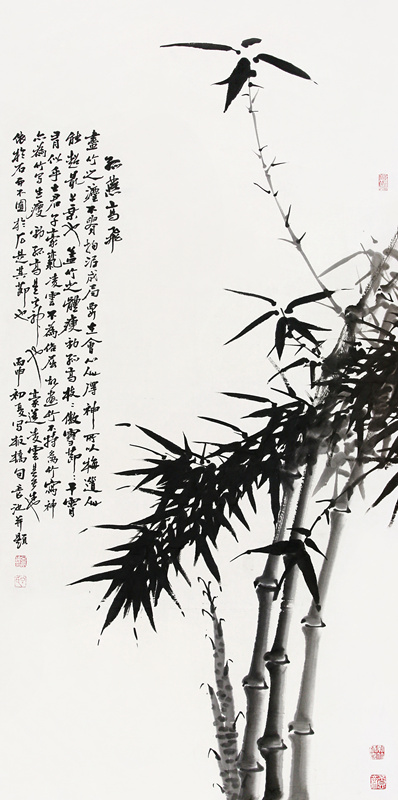 孤燕高飛
畫竹之法不貴拘泥成局要在會心人得神所以梅道人
能超最上乘也蓋竹之體瘦勁孤高枝〻傲雪節〻干霄
有似乎士君子豪氣凌雲不為俗屈故畫竹不特為竹寫神
亦為竹寫生瘦勁孤高是其神也豪邁凌雲是其生也
依於石而不囿於石是其節也 丙申初夏寫板橋句 並題